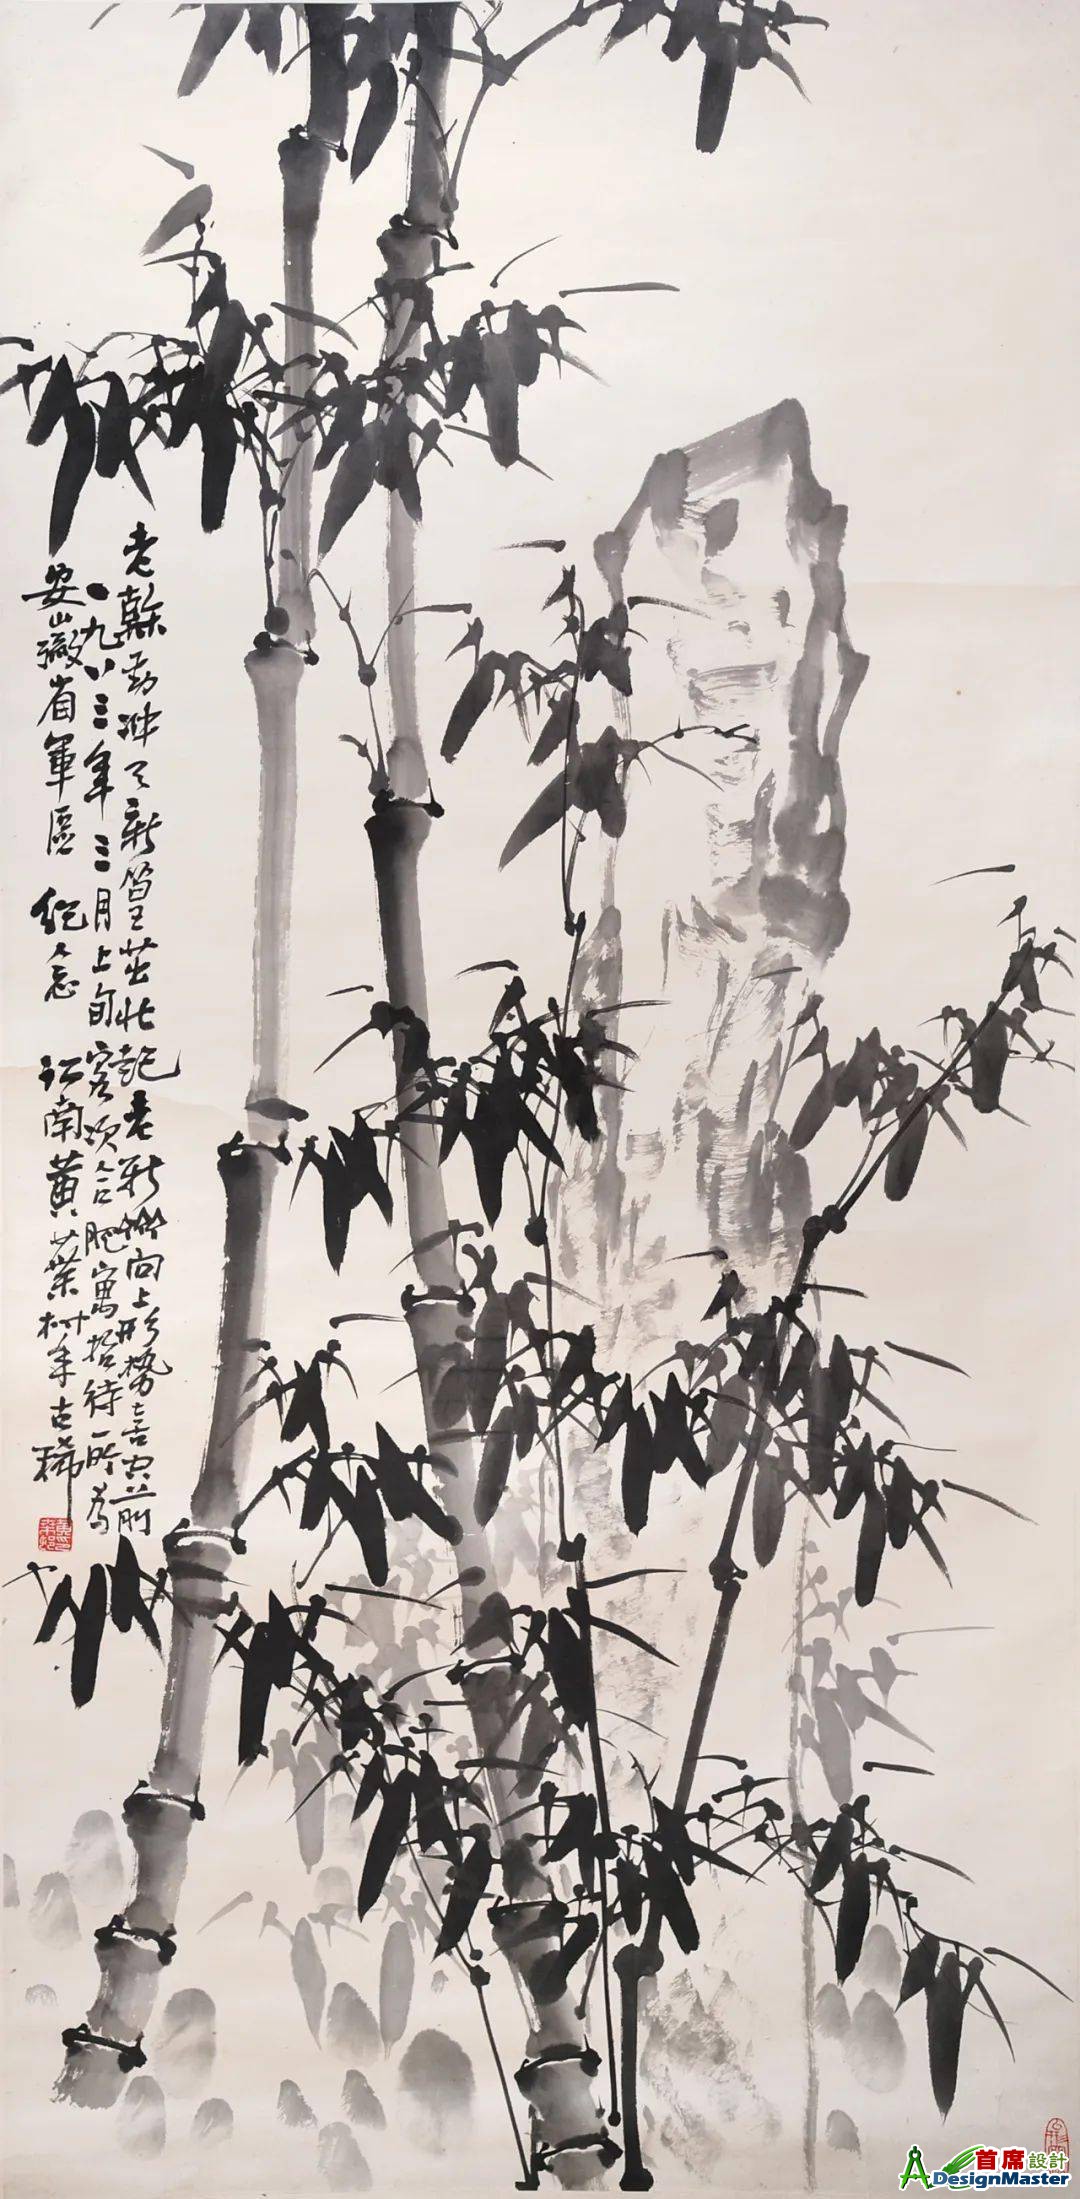 老榦勁沖天新篁茁壯起老新齊向上形势喜空前
一九八三年三月上旬客次合肥寓招待所為
安徽省軍區 紀念 江南黄葉村年古稀
首席設計
DesignMaster